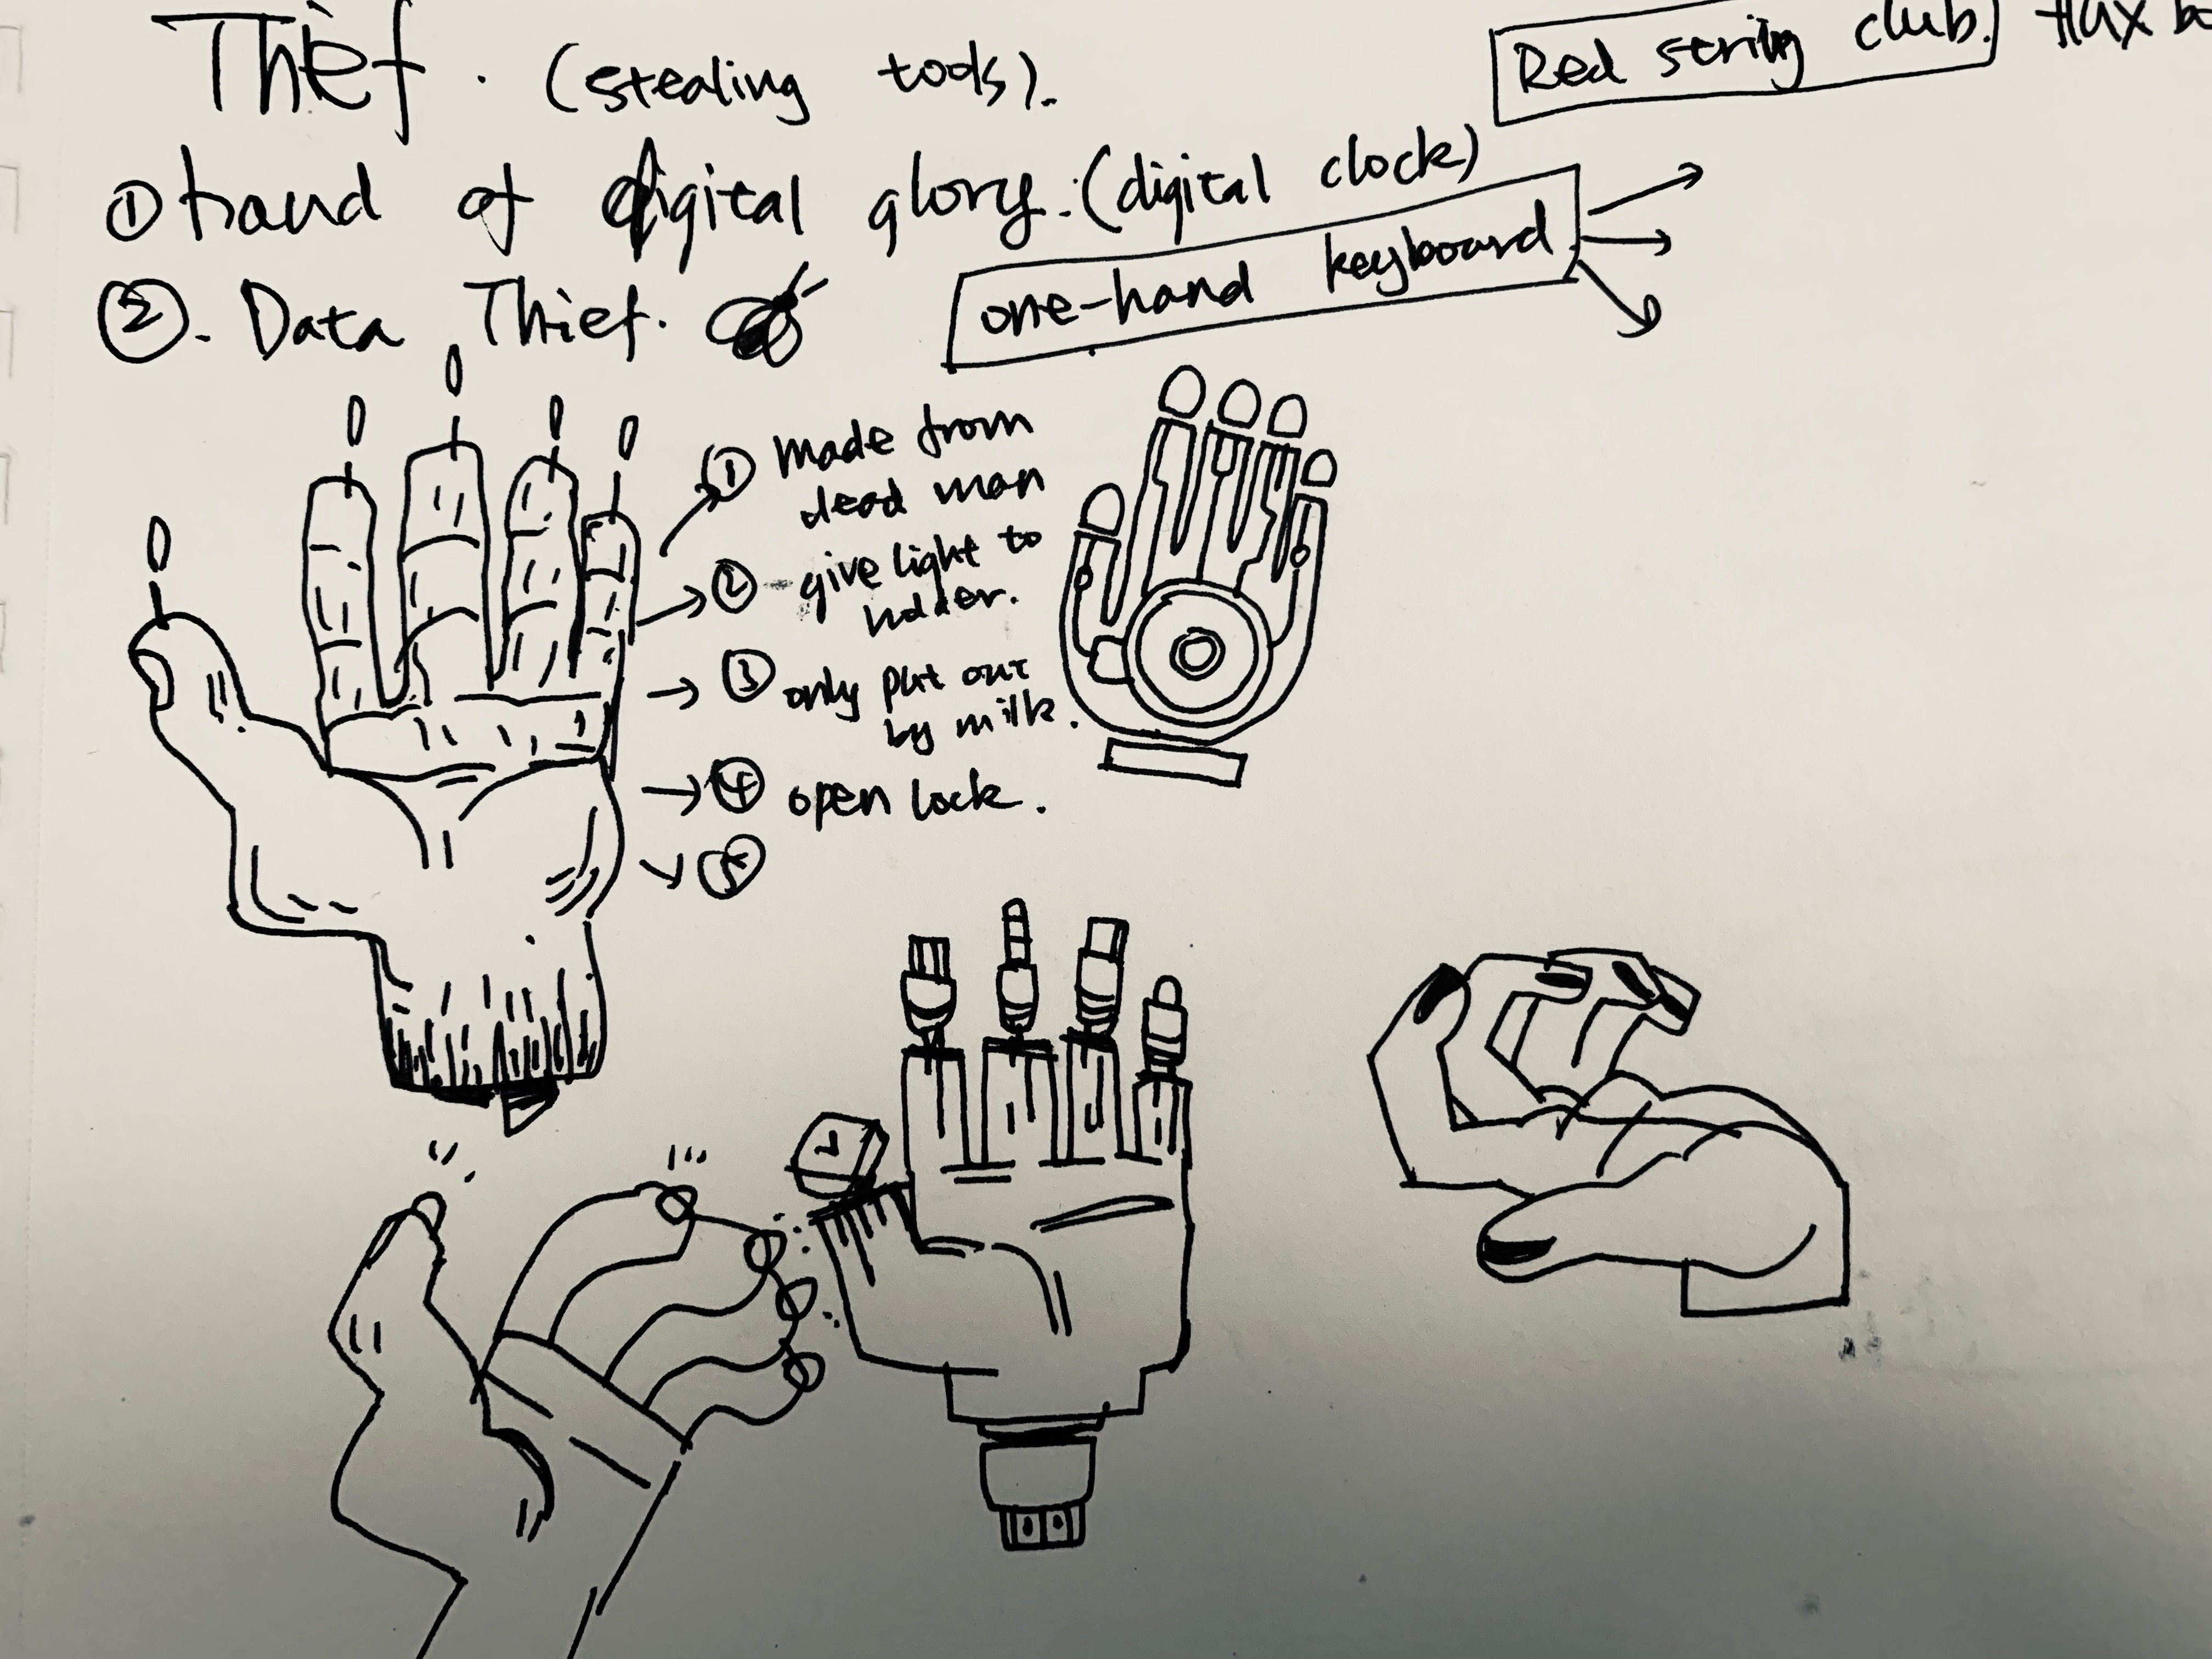 Thief. (stealing tools).
Red string club. flux
① hand of digital glory. (digital clock)
②. Data Thief.
one-hand keyboard
① made from
dead man
② give light to
holder.
③ only put out
by milk.
④ open lock.
⑤